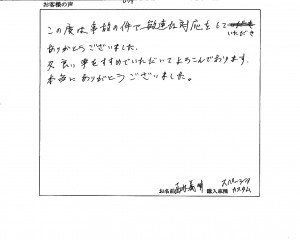 お客様の声
この度は事故の件で、敏速な対応をして
いただき
ありがとうございました。
又良い車をすすめていただいてよろこんでおります。
本当にありがとうございました。
お名前
購入車種
スペーシア
カスタム